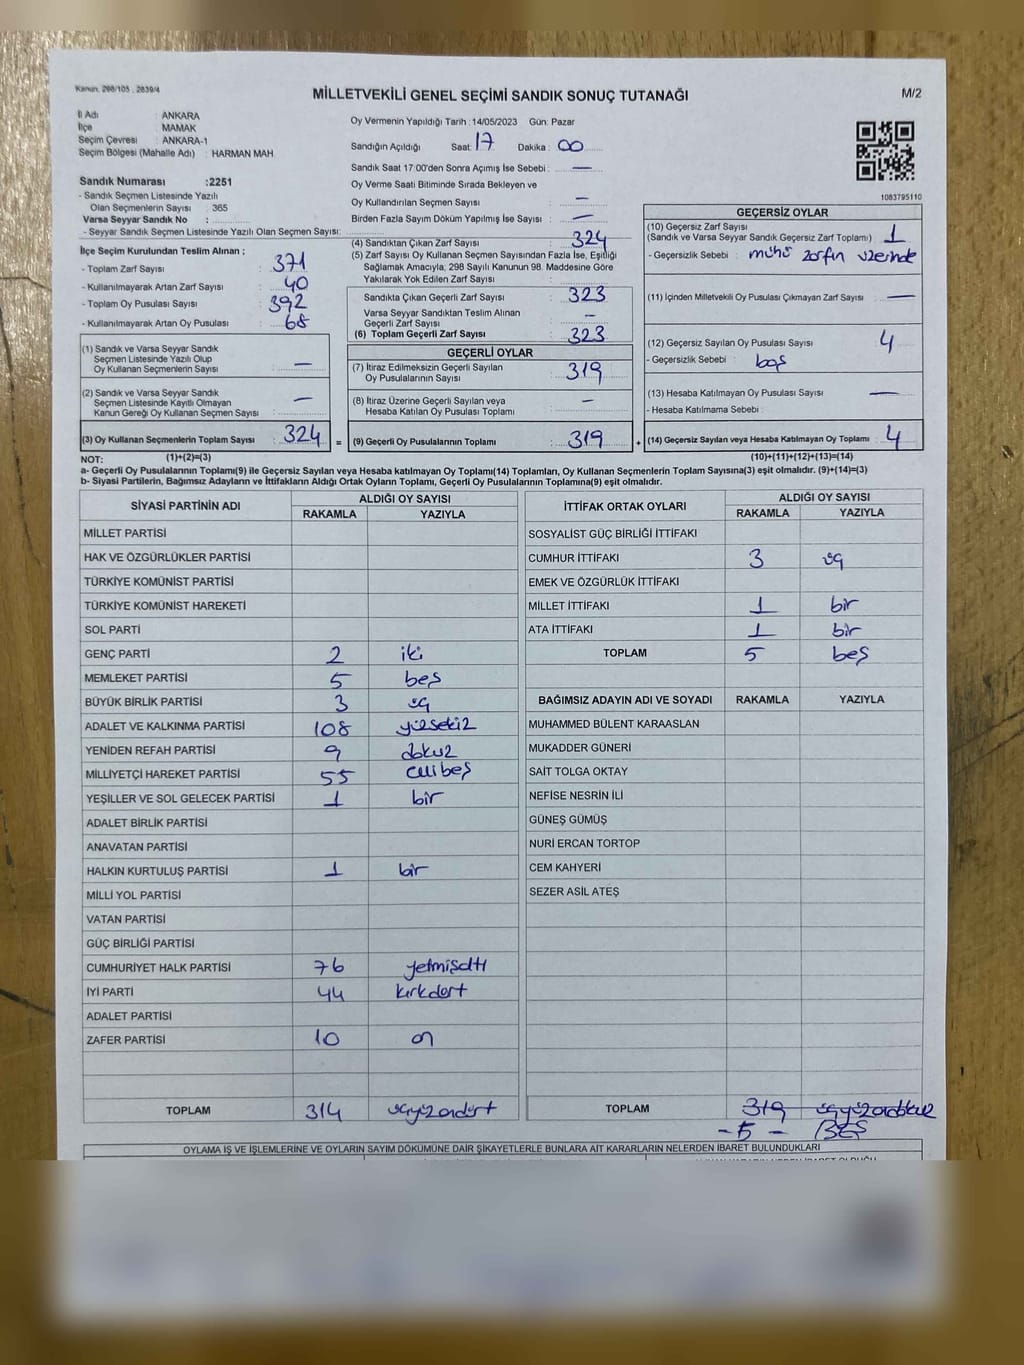 Kanun. 298/105 . 2839/4
MİLLETVEKİLİ GENEL SEÇİMİ SANDIK SONUÇ TUTANAĞI
M/2
İl Adı : ANKARA
İlçe : MAMAK
Seçim Çevresi : ANKARA-1
Seçim Bölgesi (Mahalle Adı) : HARMAN MAH
Sandık Numarası :2251
- Sandık Seçmen Listesinde Yazılı
Olan Seçmenlerin Sayısı : 365
Varsa Seyyar Sandık No :
- Seyyar Sandık Seçmen Listesinde Yazılı Olan Seçmen Sayısı:
Oy Vermenin Yapıldığı Tarih :14/05/2023 Gün: Pazar
Sandığın Açıldığı Saat: 17 Dakika : 00
Sandık Saat 17:00'den Sonra Açımış İse Sebebi : —
Oy Verme Saati Bitiminde Sırada Bekleyen ve
Oy Kullandırılan Seçmen Sayısı : —
Birden Fazla Sayım Döküm Yapılmış İse Sayısı : —
1083795110
İlçe Seçim Kurulundan Teslim Alınan ;
- Toplam Zarf Sayısı : 371
- Kullanılmayarak Artan Zarf Sayısı : 40
- Toplam Oy Pusulası Sayısı : 392
- Kullanılmayarak Artan Oy Pusulası : 68
(1) Sandık ve Varsa Seyyar Sandık
Seçmen Listesinde Yazılı Olup
Oy Kullanan Seçmenlerin Sayısı : —
(2) Sandık ve Varsa Seyyar Sandık
Seçmen Listesinde Kayıtlı Olmayan
Kanun Gereği Oy Kullanan Seçmen Sayısı : —
(3) Oy Kullanan Seçmenlerin Toplam Sayısı : 324 =
(4) Sandıktan Çıkan Zarf Sayısı : 324
(5) Zarf Sayısı Oy Kullanan Seçmen Sayısından Fazla İse, Eşitliği
Sağlamak Amacıyla; 298 Sayılı Kanunun 98. Maddesine Göre
Yakılarak Yok Edilen Zarf Sayısı :
Sandıkta Çıkan Geçerli Zarf Sayısı : 323
Varsa Seyyar Sandıktan Teslim Alınan
Geçerli Zarf Sayısı : —
(6) Toplam Geçerli Zarf Sayısı : 323
GEÇERLİ OYLAR
(7) İtiraz Edilmeksizin Geçerli Sayılan
Oy Pusulalarının Sayısı : 319
(8) İtiraz Üzerine Geçerli Sayılan veya
Hesaba Katılan Oy Pusulası Toplamı : —
(9) Geçerli Oy Pusulalarının Toplamı : 319 +
GEÇERSİZ OYLAR
(10) Geçersiz Zarf Sayısı
(Sandık ve Varsa Seyyar Sandık Geçersiz Zarf Toplamı) : 1
- Geçersizlik Sebebi : mühü zarfın üzerinde
(11) İçinden Milletvekili Oy Pusulası Çıkmayan Zarf Sayısı : —
(12) Geçersiz Sayılan Oy Pusulası Sayısı : 4
- Geçersizlik Sebebi : boş
(13) Hesaba Katılmayan Oy Pusulası Sayısı : —
- Hesaba Katılmama Sebebi :
(14) Geçersiz Sayılan veya Hesaba Katılmayan Oy Toplamı : 4
NOT: (1)+(2)=(3) (10)+(11)+(12)+(13)=(14)
a- Geçerli Oy Pusulalarının Toplamı(9) ile Geçersiz Sayılan veya Hesaba katılmayan Oy Toplamı(14) Toplamları, Oy Kullanan Seçmenlerin Toplam Sayısına(3) eşit olmalıdır. (9)+(14)=(3)
b- Siyasi Partilerin, Bağımsız Adayların ve İttifakların Aldığı Ortak Oyların Toplamı, Geçerli Oy Pusulalarının Toplamına(9) eşit olmalıdır.
SİYASİ PARTİNİN ADI ALDIĞI OY SAYISI
RAKAMLA YAZIYLA
MİLLET PARTİSİ
HAK VE ÖZGÜRLÜKLER PARTİSİ
TÜRKİYE KOMÜNİST PARTİSİ
TÜRKİYE KOMÜNİST HAREKETİ
SOL PARTİ
GENÇ PARTİ 2 iki
MEMLEKET PARTİSİ 5 beş
BÜYÜK BİRLİK PARTİSİ 3 üç
ADALET VE KALKINMA PARTİSİ 108 yüzsekiz
YENİDEN REFAH PARTİSİ 9 dokuz
MİLLİYETÇİ HAREKET PARTİSİ 55 ellibeş
YEŞİLLER VE SOL GELECEK PARTİSİ 1 bir
ADALET BİRLİK PARTİSİ
ANAVATAN PARTİSİ
HALKIN KURTULUŞ PARTİSİ 1 bir
MİLLİ YOL PARTİSİ
VATAN PARTİSİ
GÜÇ BİRLİĞİ PARTİSİ
CUMHURİYET HALK PARTİSİ 76 yetmişaltı
İYİ PARTİ 44 kırkdört
ADALET PARTİSİ
ZAFER PARTİSİ 10 on
TOPLAM 314 üçyüzondört
İTTİFAK ORTAK OYLARI ALDIĞI OY SAYISI
RAKAMLA YAZIYLA
SOSYALİST GÜÇ BİRLİĞİ İTTİFAKI
CUMHUR İTTİFAKI 3 üç
EMEK VE ÖZGÜRLÜK İTTİFAKI
MİLLET İTTİFAKI 1 bir
ATA İTTİFAKI 1 bir
TOPLAM 5 beş
BAĞIMSIZ ADAYIN ADI VE SOYADI RAKAMLA YAZIYLA
MUHAMMED BÜLENT KARAASLAN
MUKADDER GÜNERİ
SAİT TOLGA OKTAY
NEFİSE NESRİN İLİ
GÜNEŞ GÜMÜŞ
NURİ ERCAN TORTOP
CEM KAHYERİ
SEZER ASİL ATEŞ
TOPLAM 319 üçyüzondokuz
-5- BEŞ
OYLAMA İŞ VE İŞLEMLERİNE VE OYLARIN SAYIM DÖKÜMÜNE DAİR ŞİKAYETLERLE BUNLARA AİT KARARLARIN NELERDEN İBARET BULUNDUKLARI